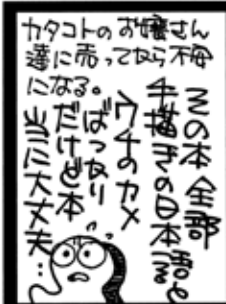 カタコトのお嬢さん
達に売ってから不安
になる。
その本全部
手描きの日本語と
ウチのカメ
ばっかり
だけど本
当に大丈夫…